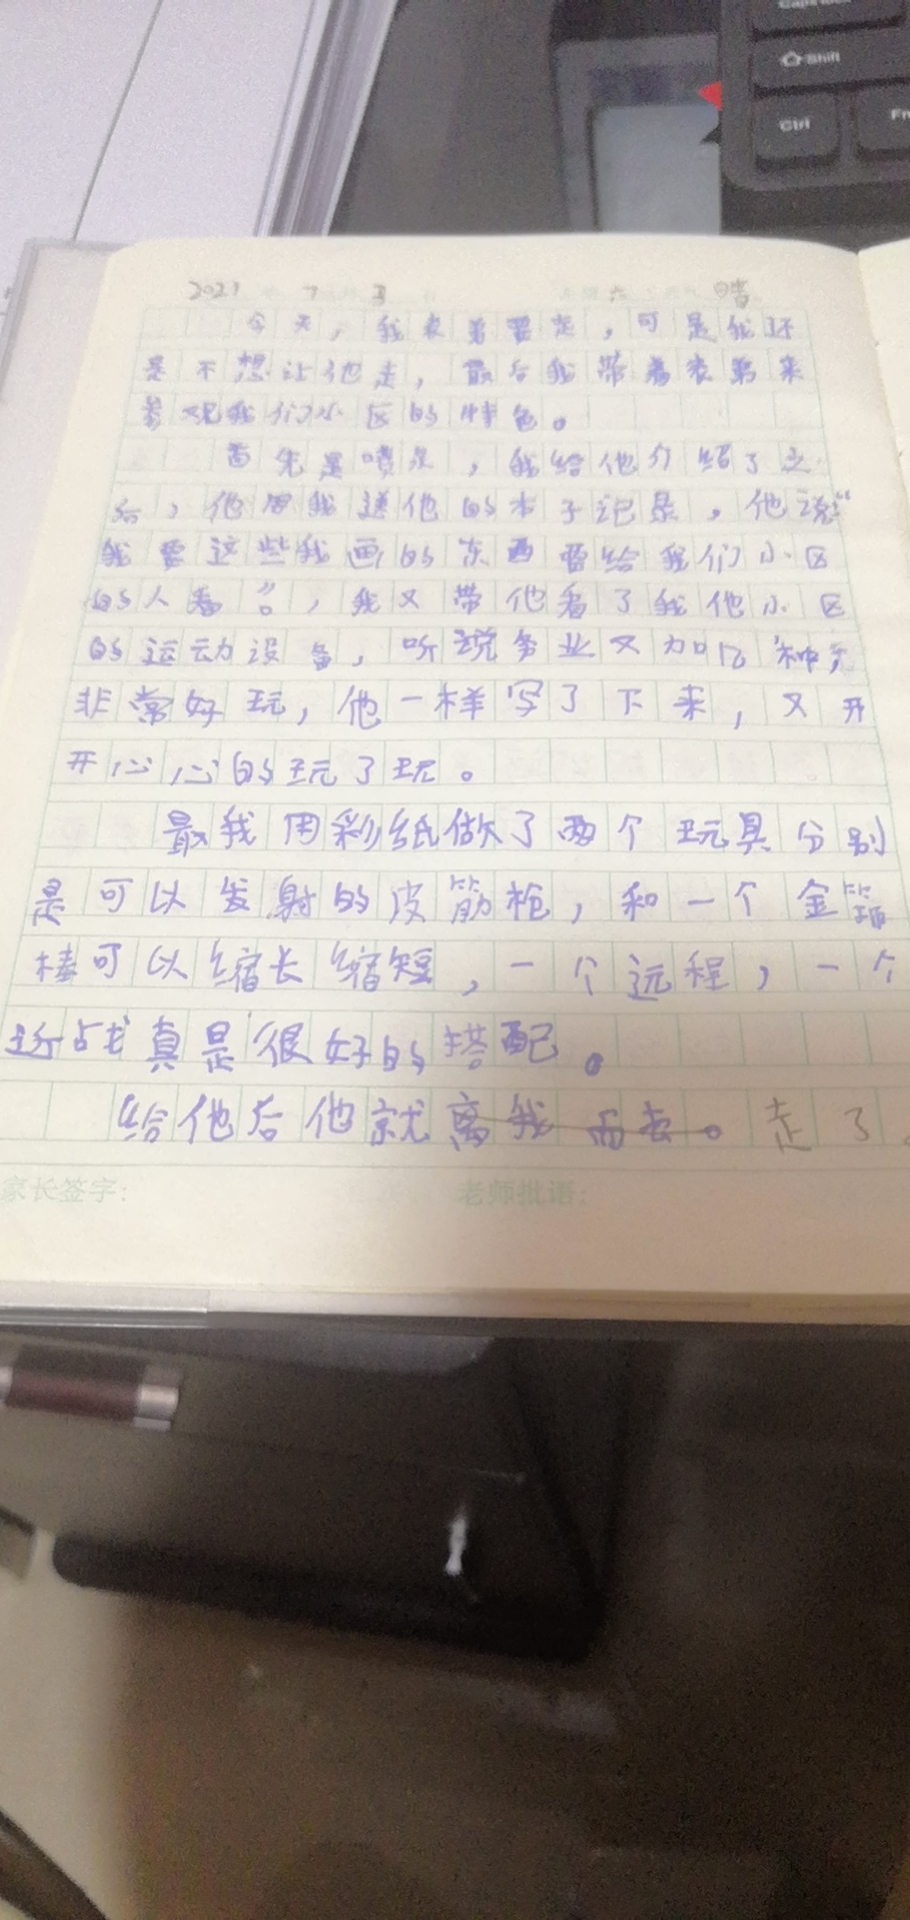 Caps Lock
Shift
Ctrl
Fn
2021 7 3 六 晴
今天，我表弟要走，可是我还
是不想让他走，最后我带着表弟来
参观我们小区的特色。
首先是喷泉，我给他介绍了之
后，他用我送他的本子记录，他说“
我要这些我画的东西要给我们小区
的人看”。，我又带他看了我他小区
的运动设备，听说务业又加几种，
非常好玩，他一样写了下来，又开
开心心的玩了玩。
最我用彩纸做了两个玩具分别
是可以发射的皮筋枪，和一个金箍
棒可以缩长缩短，一个远程，一个
近战真是很好的搭配。
给他后他就离我而去。走了。
家长签字：
老师批语：